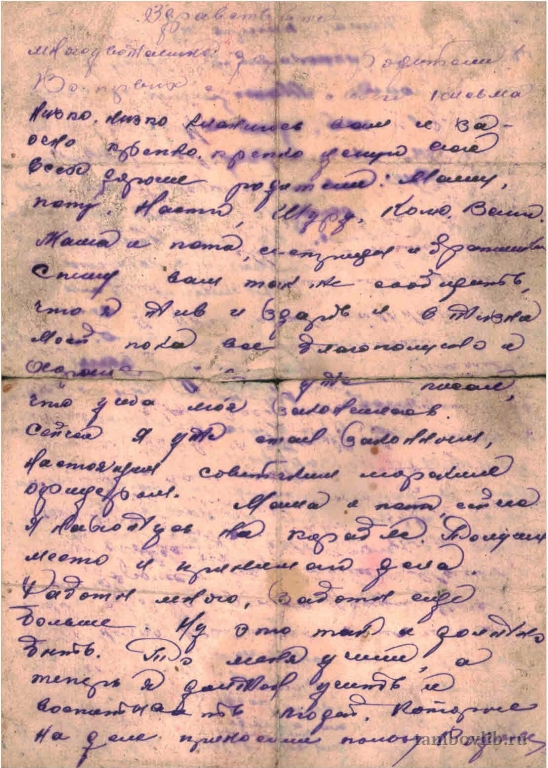 Здравствуйте
многоуважаемые родители
Во первых письма
низко, низко кланяюсь вам и за-
очно крепко, крепко целую вас
всех дорогие родители: Маму,
папу Настю, Шуру, Колю, Ваню.
Мама и папа, сестрицы и братишки
Спешу вам также сообщить,
что я жив и здоров и в жизни
моей пока все благополучно и
хорошо. уже писал,
что учеба моя закончилась
Сейчас я уже стал законным,
настоящим советским морским
офицером. Мама и папа, сейчас
я нахожусь на корабле. Получил
место и принимаю дела.
Работы много, заботы еще
больше. Ну это так и должно
быть. То меня учили, а
теперь я должен учить и
воспитывать людей, которые
на деле приносили пользу
tambovlib.ru